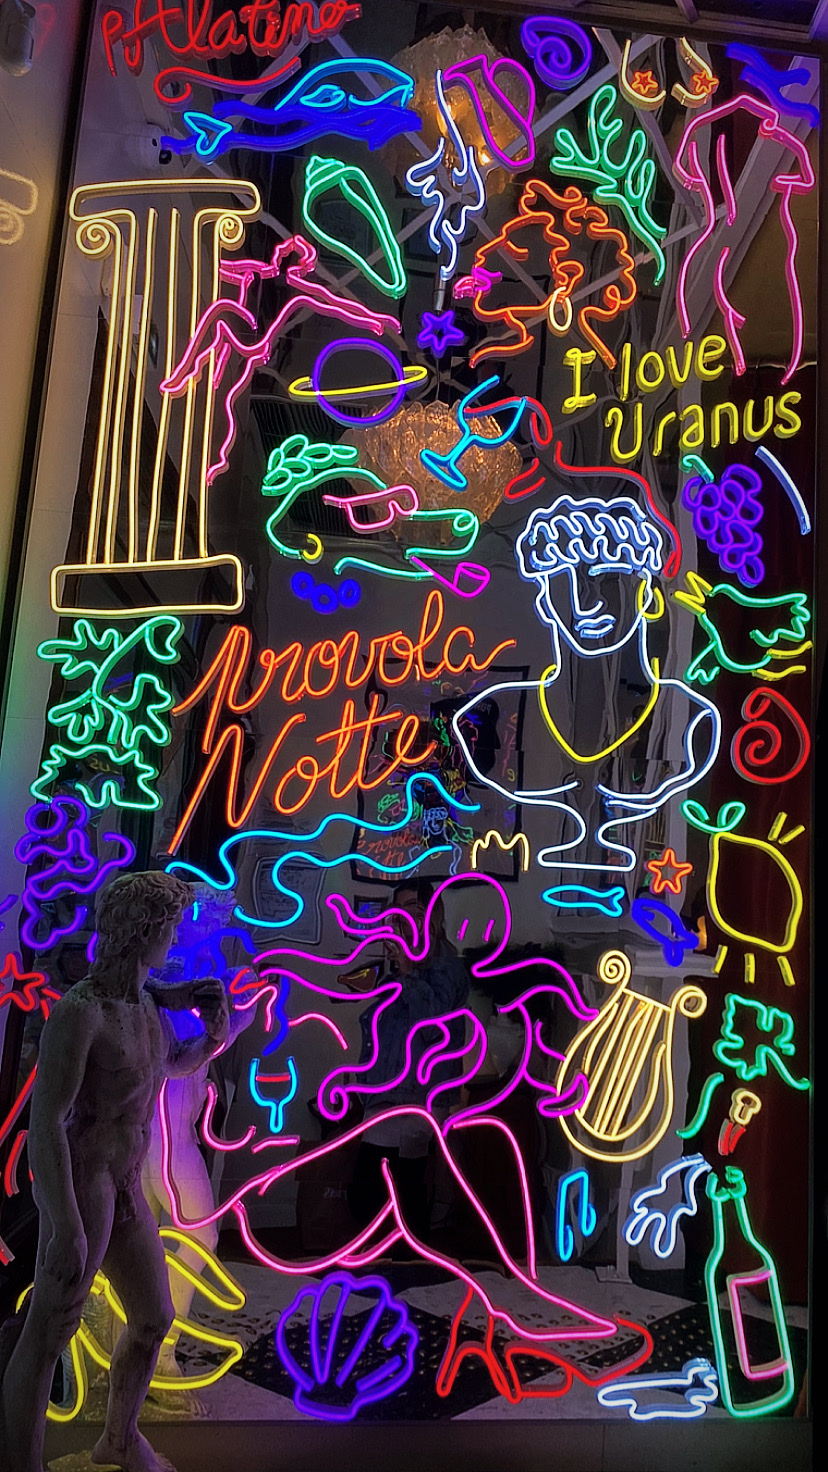 pAlatino
I love
Uranus
provola
Notte